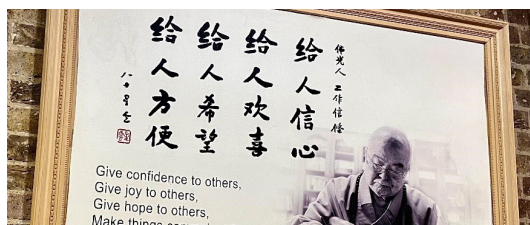 佛光人 工作信條
给人信心
给人欢喜
给人希望
给人方便
Give confidence to others,
Give joy to others,
Give hope to others,
Make things